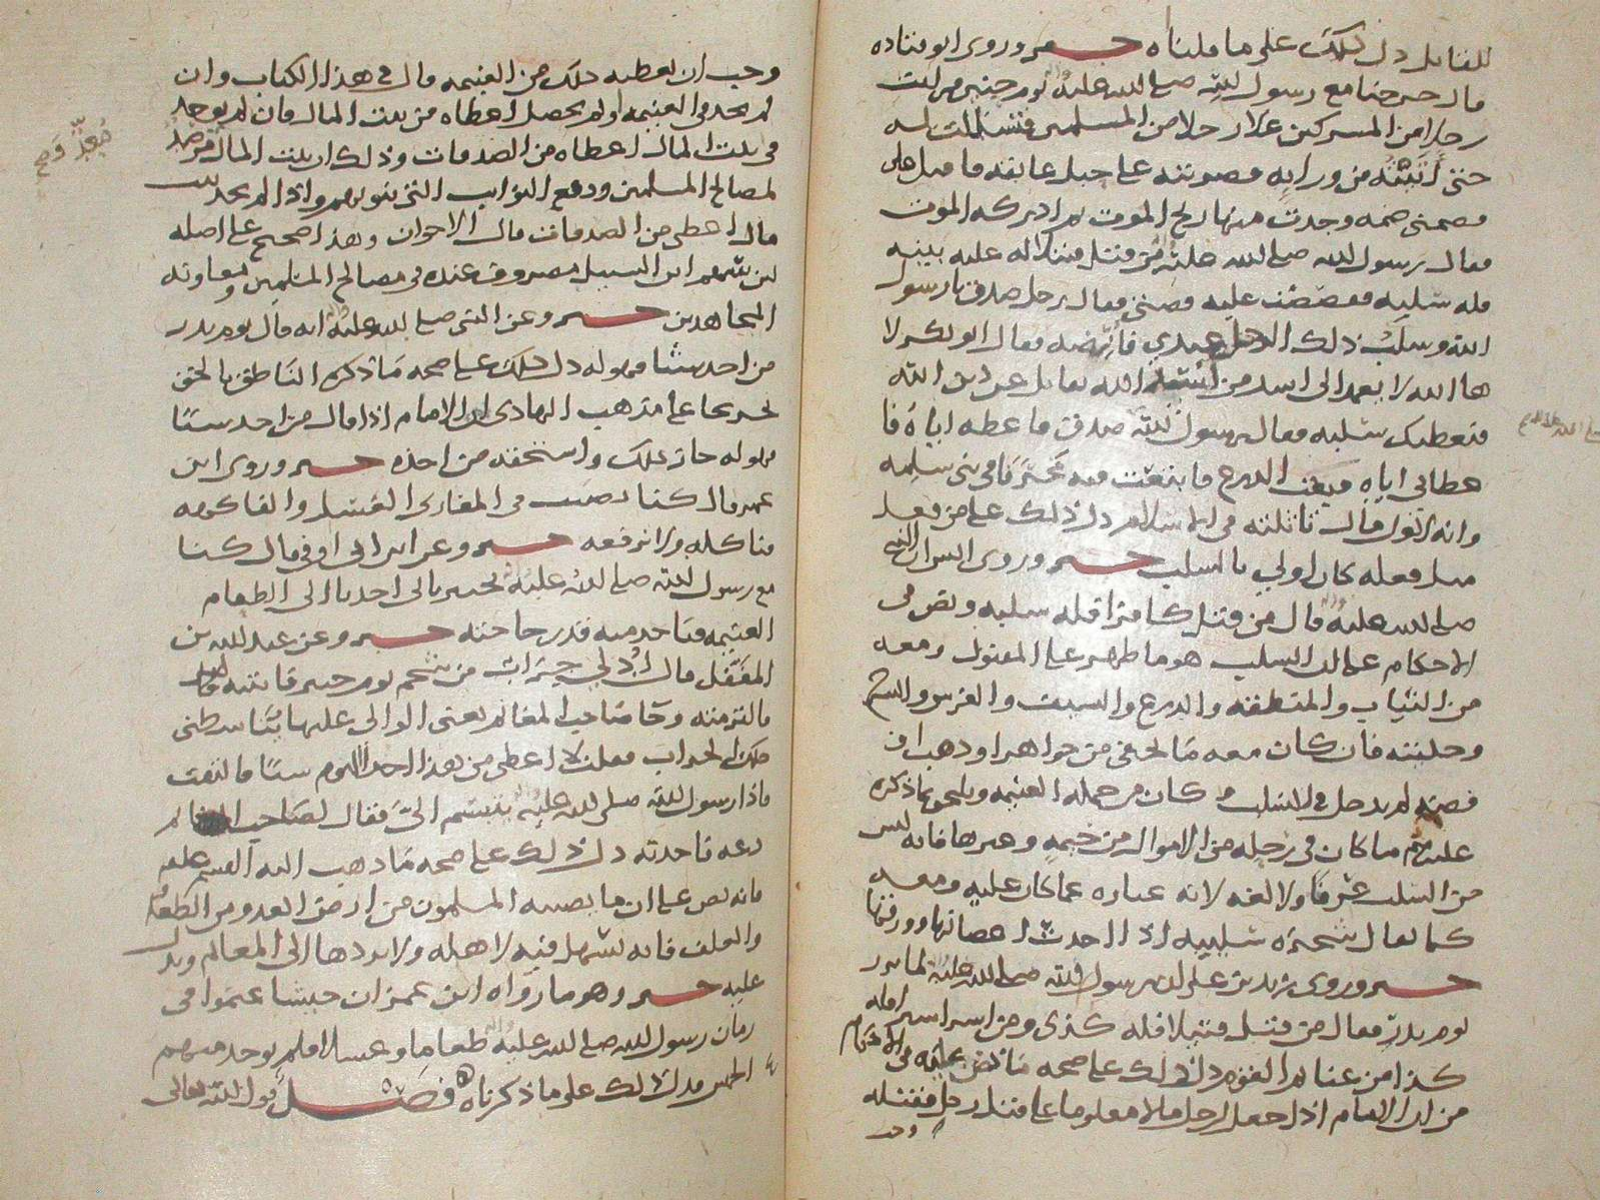 للقاتل دل ذلك على ما قلناه خبر وروى ابو قتاده
قال خرجنا مع رسول الله صلى الله عليه يوم حنين فرايت
رجلا من المشركين علا رجلا من المسلمين فاستدرت له
حتى أتيته من ورايه فضربته على حبل عاتقه فاقبل علي
فضمني ضمه وجدت منها ريح الموت ثم ادركه الموت
فقال رسول الله صلى الله عليه من قتل قتيلا له عليه بينه
فله سلبه فقصصت عليه قصتي فقال رجل صدق يا رسول
الله وسلب ذلك الرجل عندي فأرضه فقال ابو بكر لا
ها الله لا يعمد الى اسد من أسد الله يقاتل عن دين الله
فنعطيك سلبه فقال رسول الله صدق فاعطه اياه فا
عطاني اياه فبعت الدرع فابتعت به مخرفا في بني سلمه
وانه لاول مال تاثلته في الاسلام دل ذلك على من فعل
مثل فعله كان اولى بالسلب خبر وروى انس ان النبي
صلى الله عليه قال من قتل كافرا فله سلبه ونص في
الاحكام على ان السلب هو ما ظهر على المقتول ومعه
من الثياب والمنطقه والدرع والسيف والفرس والسرج
وحليته فان كان معه ما يخفى من جواهر او ذهب او
فضه لم يدخل في السلب و كان من جمله الغنيمه ويلحق بما ذكره
عليلم ما كان في رحله من الاموال من خيمه وغيرها فانه ليس
من السلب عرفا ولا لغه لانه عباره عما كان عليه ومعه
كما يقال شجره سليبه اذا اخذت اغصانها وورقها
خبر وروى زيد بن علي ان رسول الله صلى الله عليه لما برز
يوم بدر فقال من قتل قتيلا فله كذى ومن اسر اسيرا فله
كذا من غنايم القوم دل ذلك على صحه ما نص عليه في الاحكام
من ان الامام اذا جعل لرجل مالا معلوما على قتل رجل فقتله
وجب
وجب ان يعطيه ذلك من الغنيمه قال في هذا الكتاب وان
لم يجد في الغنيمه او لم يحصل اعطاه من بيت المال فان لم يوجد
في بيت المال اعطاه من الصدقات وذلك ان بيت المال مرصد
لمصالح المسلمين ودفع النوايب التي تنوبهم واذا لم يجد
قال اعطى من الصدقات قال الاخوان وهذا صحيح على اصله
لان سهم ابن السبيل مصروف عنده في مصالح المسلمين ومعاونه
المجاهدين خبر وعن النبي صلى الله عليه انه قال يوم بدر
من اخذ شيئا فهو له دل ذلك على صحه ما ذكره الناطق بالحق
تخريجا على مذهب الهادي ان الامام اذا قال من اخذ شيئا
فهو له جاز ذلك واستحقه من اخذه خبر وروى ابن
عمر قال كنا نصيب في المغازي العسل والفاكهه
فناكله ولا نرفعه خبر وعن ابن ابي اوفى قال كنا
مع رسول الله صلى الله عليه بخيبر ياتي احدنا الى الطعام
الغنيمه فياخذ منه قدر حاجته خبر وعن عبد الله بن
المغفل قال أدلي جراب من شحم يوم خيبر فاتيته
فالتزمته وجا صاحب المغانم يعني الوالي عليها يناشطني
ذلك الجراب فقلت لا اعطي من هذا احد اليوم شيئا فالتفت
فاذا رسول الله صلى الله عليه يبتسم الي فقال لصاحب المغانم
دعه ياخذه دل ذلك على صحه ما ذهب اليه القسم عليلم
فانه نص على ان ما يصيبه المسلمون من ارض العدو من الطعام
والعلف فانه يسهل فيه لاهله ولا يردها الى المغانم ويدل
عليه خبر وهو ما رواه ابن عمر ان جيشا غنموا في
زمان رسول الله صلى الله عليه طعاما وعسلا فلم يوخذ منهم
الخمس فدل ذلك على ما ذكرناه فصل قول الله تعالى